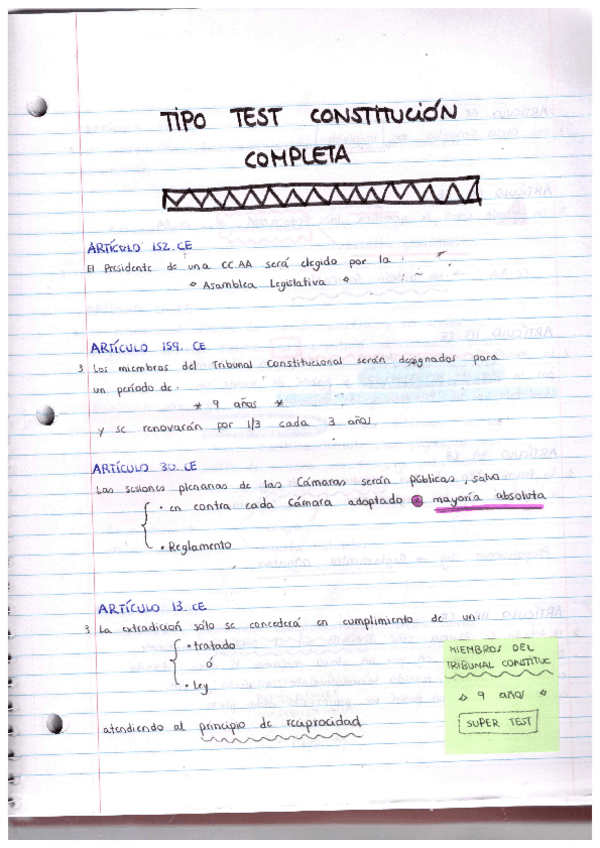 TIPO TEST CONSTITUCIÓN
COMPLETA
ARTÍCULO 152. CE
El Presidente de una CCAA será elegido por la
Asamblea Legislativa
ARTÍCULO 159. CE
3 Los miembros del Tribunal Constitucional serán designados para
un período de
* 9 años *
y se renovarán por 1/3 cada 3 años.
ARTÍCULO 30. CE
Las sesiones plenarias de las Cámaras serán públicas, salvo
• en contra cada Cámara adoptado mayoría absoluta
• Reglamento
ARTÍCULO 13. CE
3 La extradición sólo se concederá en cumplimiento de un
• tratado
ó
• ley
atendiendo al principio de reciprocidad
MIEMBROS DEL
TRIBUNAL CONSTITUC
9 años
SUPER TEST